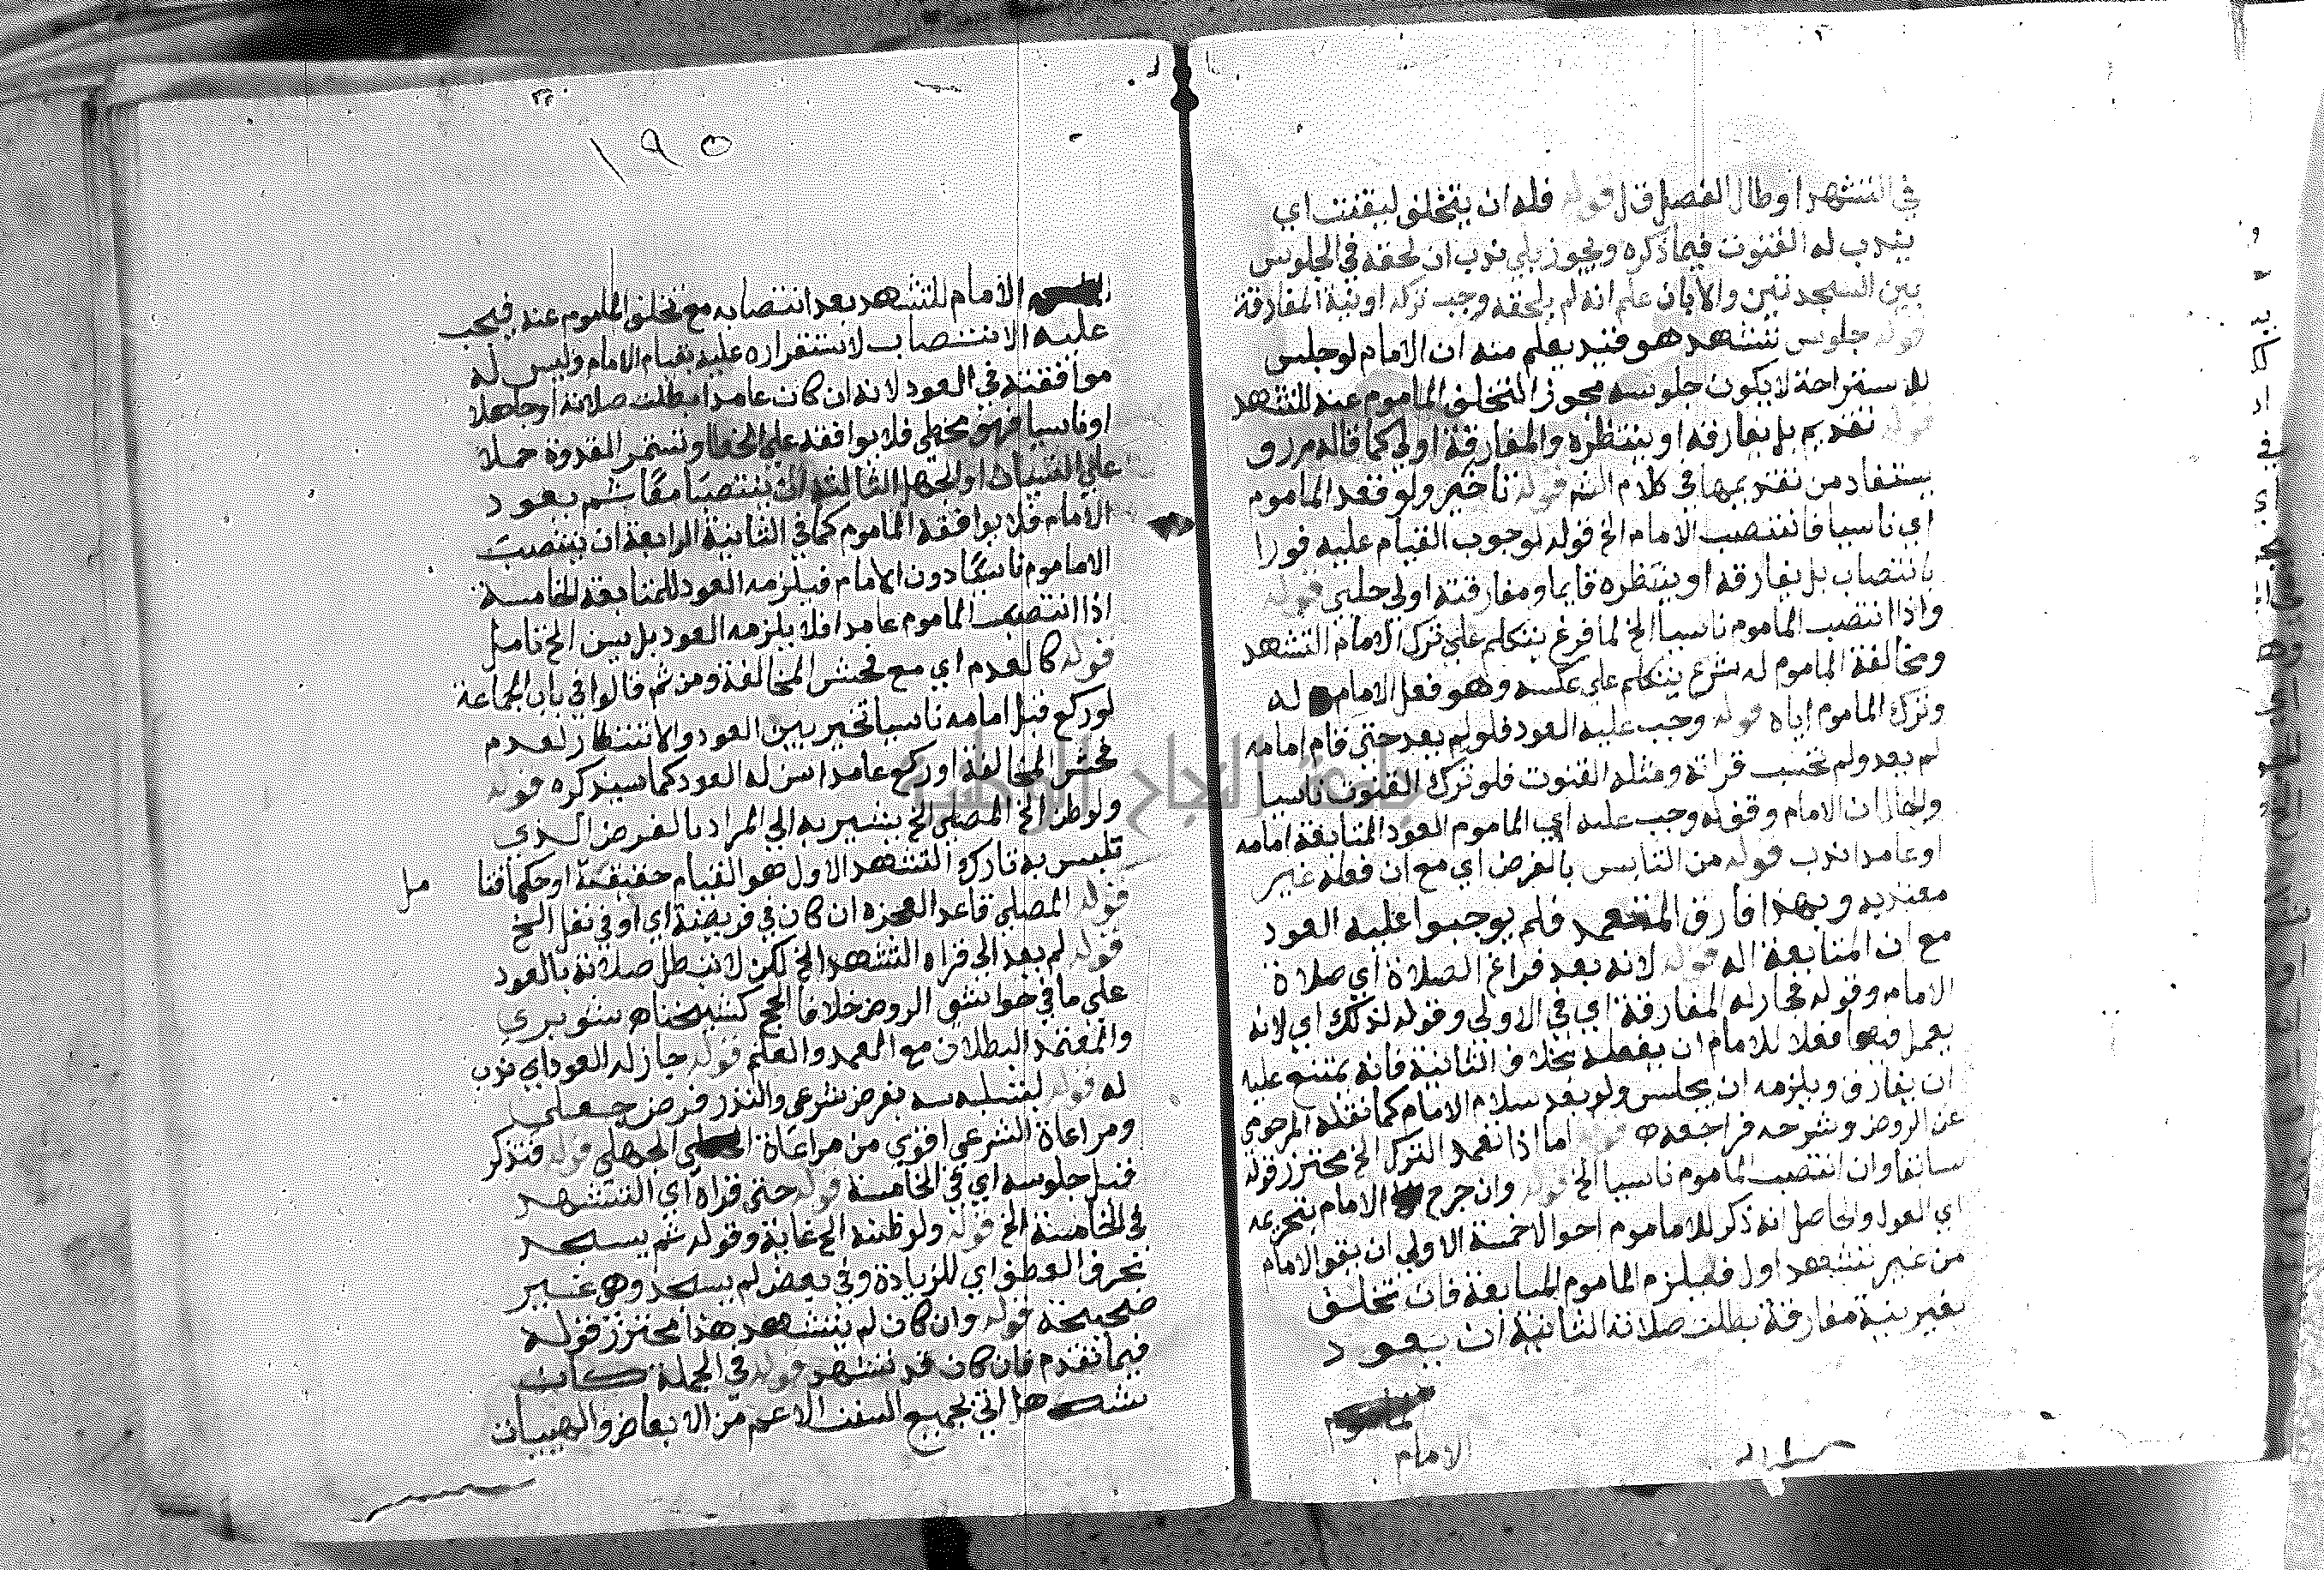 في التشهد اوطال الفصل قال قوله فله ان يتخلف ليقنت اي
يندب له القنوت فيما ذكره ويجوز بل يندب ان لحقه في الجلوس
بين السجدتين والا بان علم انه لم يلحقه وجب تركه او نية المفارقة
قوله جلوس تشهد هو قيد يعلم منه ان الامام لو جلس
للاستراحة لا يكون جلوسه مجوز التخلف الماموم عنه للتشهد
قوله تقديم بل يفارقه او ينتظره والمفارقة اولي كما قاله م ر و
يستفاد من تقديمها في كلام الشم قوله تاخير ولو قعد الماموم
اي ناسيا فانتصب الامام الخ قوله لوجوب القيام عليه فورا
بانتصاب بل يفارقه او ينتظره قايما ومفارقته اولي حلبي قوله
واذا انتصب الماموم ناسيا الخ لما فرغ يتكلم علي ترك الامام التشهد
ومخالفة الماموم له شرع يتكلم علي عكسه وهو فعل الامام له
وترك الماموم اياه قوله وجب عليه العود فلو لم يعد حتي قام امامه
لم يعد ولم تحسب قراته ومثله القنوت فلو ترك القنوت ناسيا
والحال ان الامام وقف له وجب عليه اي الماموم العود لمتابعة امامه
او عامدا ندب قوله من التلبس بالفرض اي مع ان فعله غير
معتد به وبهذا فارق المتعمد فلم يوجبوا عليه العود
مع ان المتابعة اله قوله لانه بعد فراغ الصلاة اي صلاة
الامام وقوله فجاز له المفارقة اي في الاولي وقوله لذلك اي لانه
يعمل فيها فعلا للامام ان يفعله بخلاف الثانية فانه يمتنع عليه
ان يفارق ويلزمه ان يجلس ولو بعد سلام الامام كما نقله المرحومي
عن الروض وشرحه فراجعه قوله اما اذا تعمد الترك الخ محترز قوله
سابقا وان انتصب الماموم ناسيا الخ قوله وان جرح الامام بتحريمه
اي العول والحاصل انه ذكر للاماموم احوالا خمسة الاولي ان يقو الامام
من غير تشهد اول فيلزم الماموم المتابعة فان تخلف
بغير نية مفارقة بطلت صلاته الثانية ان يعود
الامام
١٩٥
الامام للتشهد بعد انتصابه مع تخلف الماموم عنه فيجب
عليه الانتصاب لاستقراره عليه بقيام الامام وليس له
موافقته في العود لانه ان كان عامدا بطلت صلاته او جاهلا
او ناسيا فهو مخطي فلا يوافقه علي الخطا وتستمر القدوة حملا
علي النسيان او الجهل الثالثة ان ينتصبا معا ثم يعود
الامام فلا يوافقه الماموم كما في الثانية الرابعة ان ينتصب
الاماموم ناسيا دون الامام فيلزمه العود للمتابعة الخامسة
اذا انتصب الماموم عامدا فلا يلزمه العود بل يسن الخ تامل
قوله كالعدم اي مع فحش المخالفة ومن ثم قالوا في باب الجماعة
لو ركع قبل امامه ناسيا تخير بين العود والانتظار لعدم
فحش المخالفة او ركع عامدا سن له العود كما سيذكره قوله
ولو ظن الخ المصلي الخ يشير به الي المراد بالفرض الذي
تلبس به تارك التشهد الاول هو القيام حقيقة او حكما فتا مل
قوله المصلي قاعد العجزه ان كان في فريضة اي او في نفل الخ
قوله لم يعد الي قراه التشهد الخ لكن لا تبطل صلاته بالعود
علي ما في حواشي الروض خلافا لحج كشيخنا ه شوبري
والمعتمد البطلان مع العمد والعلم قوله جاز له العود اي ندب
له قوله لتلبسه بفرض شرعي والنذر فرض جعلي
ومراعاة الشرعي اقوي من مراعاة الجعلي قوله فتذكر
قبل جلوسه اي في الخامسة قوله حتي قراه اي التشهد
في الخامسة الخ قوله ولو ظنه الخ غاية وقوله ثم يسجد
بحرف العطف اي للزيادة وفي بعض لم يسجد وهي غير
صحيحة قوله وان كان لم يتشهد هذا محترز قوله
فيما تقدم فان كان قد تشهد قوله في الجملة كان
شك هل اتي بجميع السنن الاعم من الابعاض والهييات
جامعة النجاح الوطنية